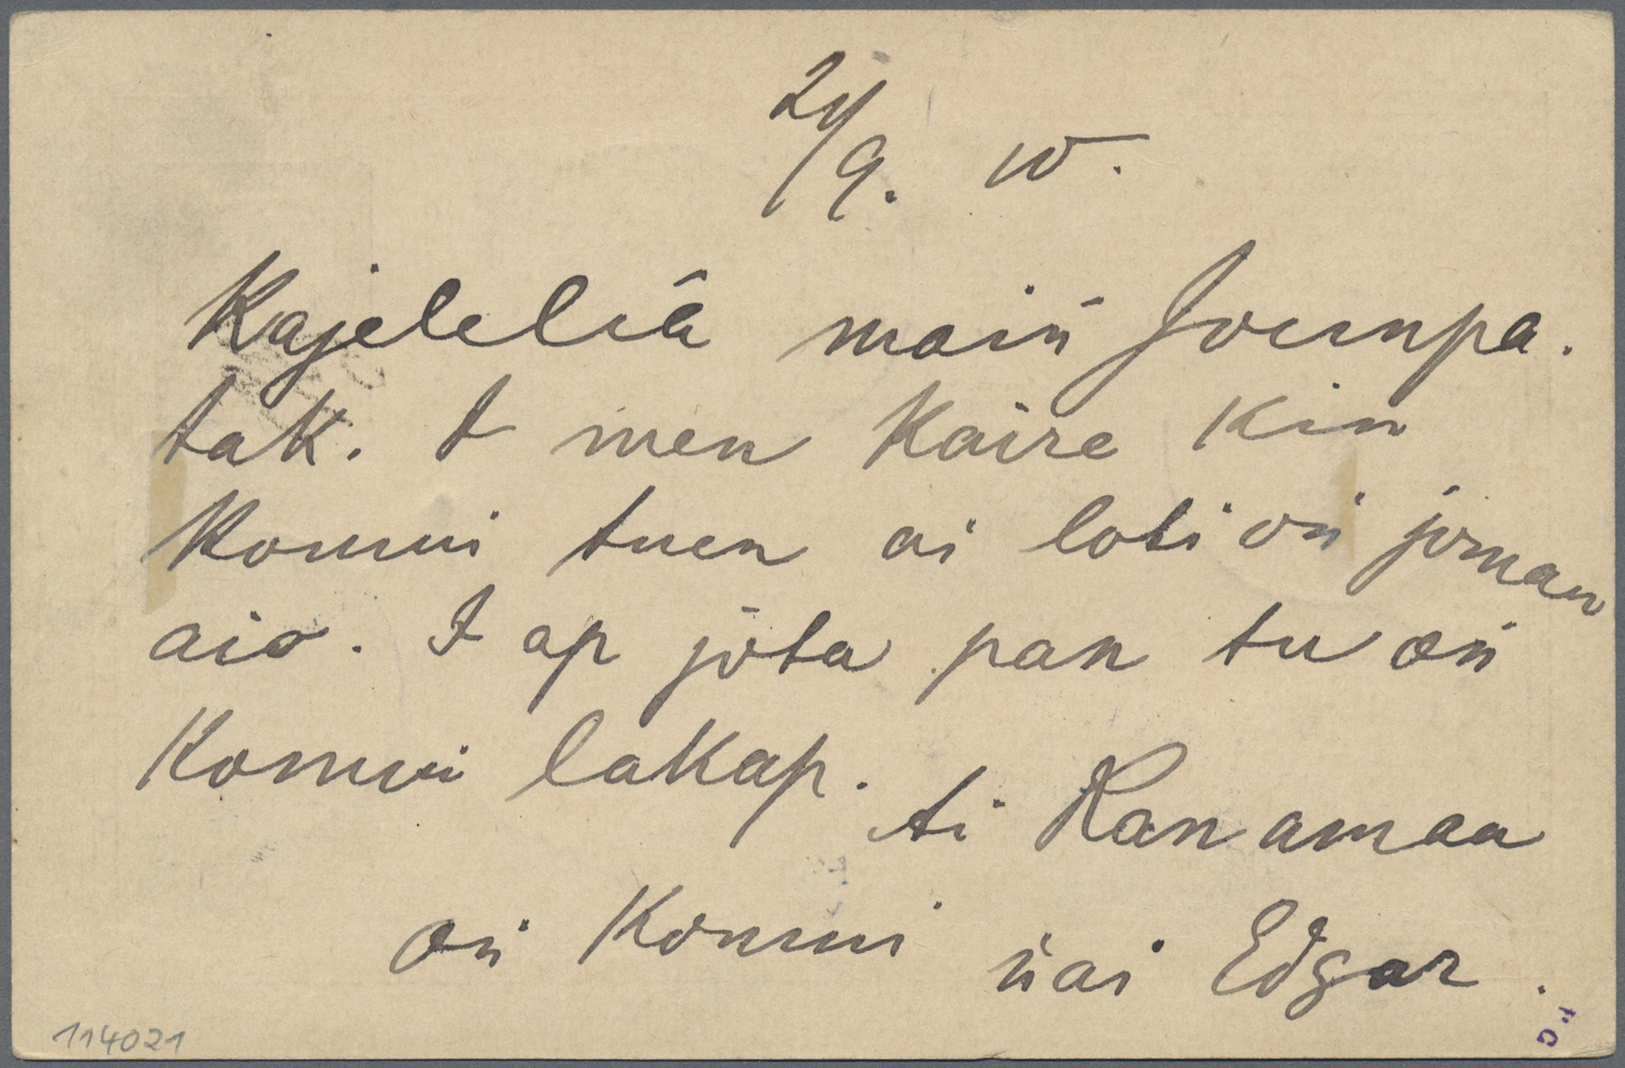 21/9. 10.
Kajeleliā main Jounpa.
tak. I men Kaire Kin
Komui tuen ai loti on joman
aio. I ap jota pan tu on
Komui lakap.
ti Ran amaa
on Komui
nai Edgar.
114021